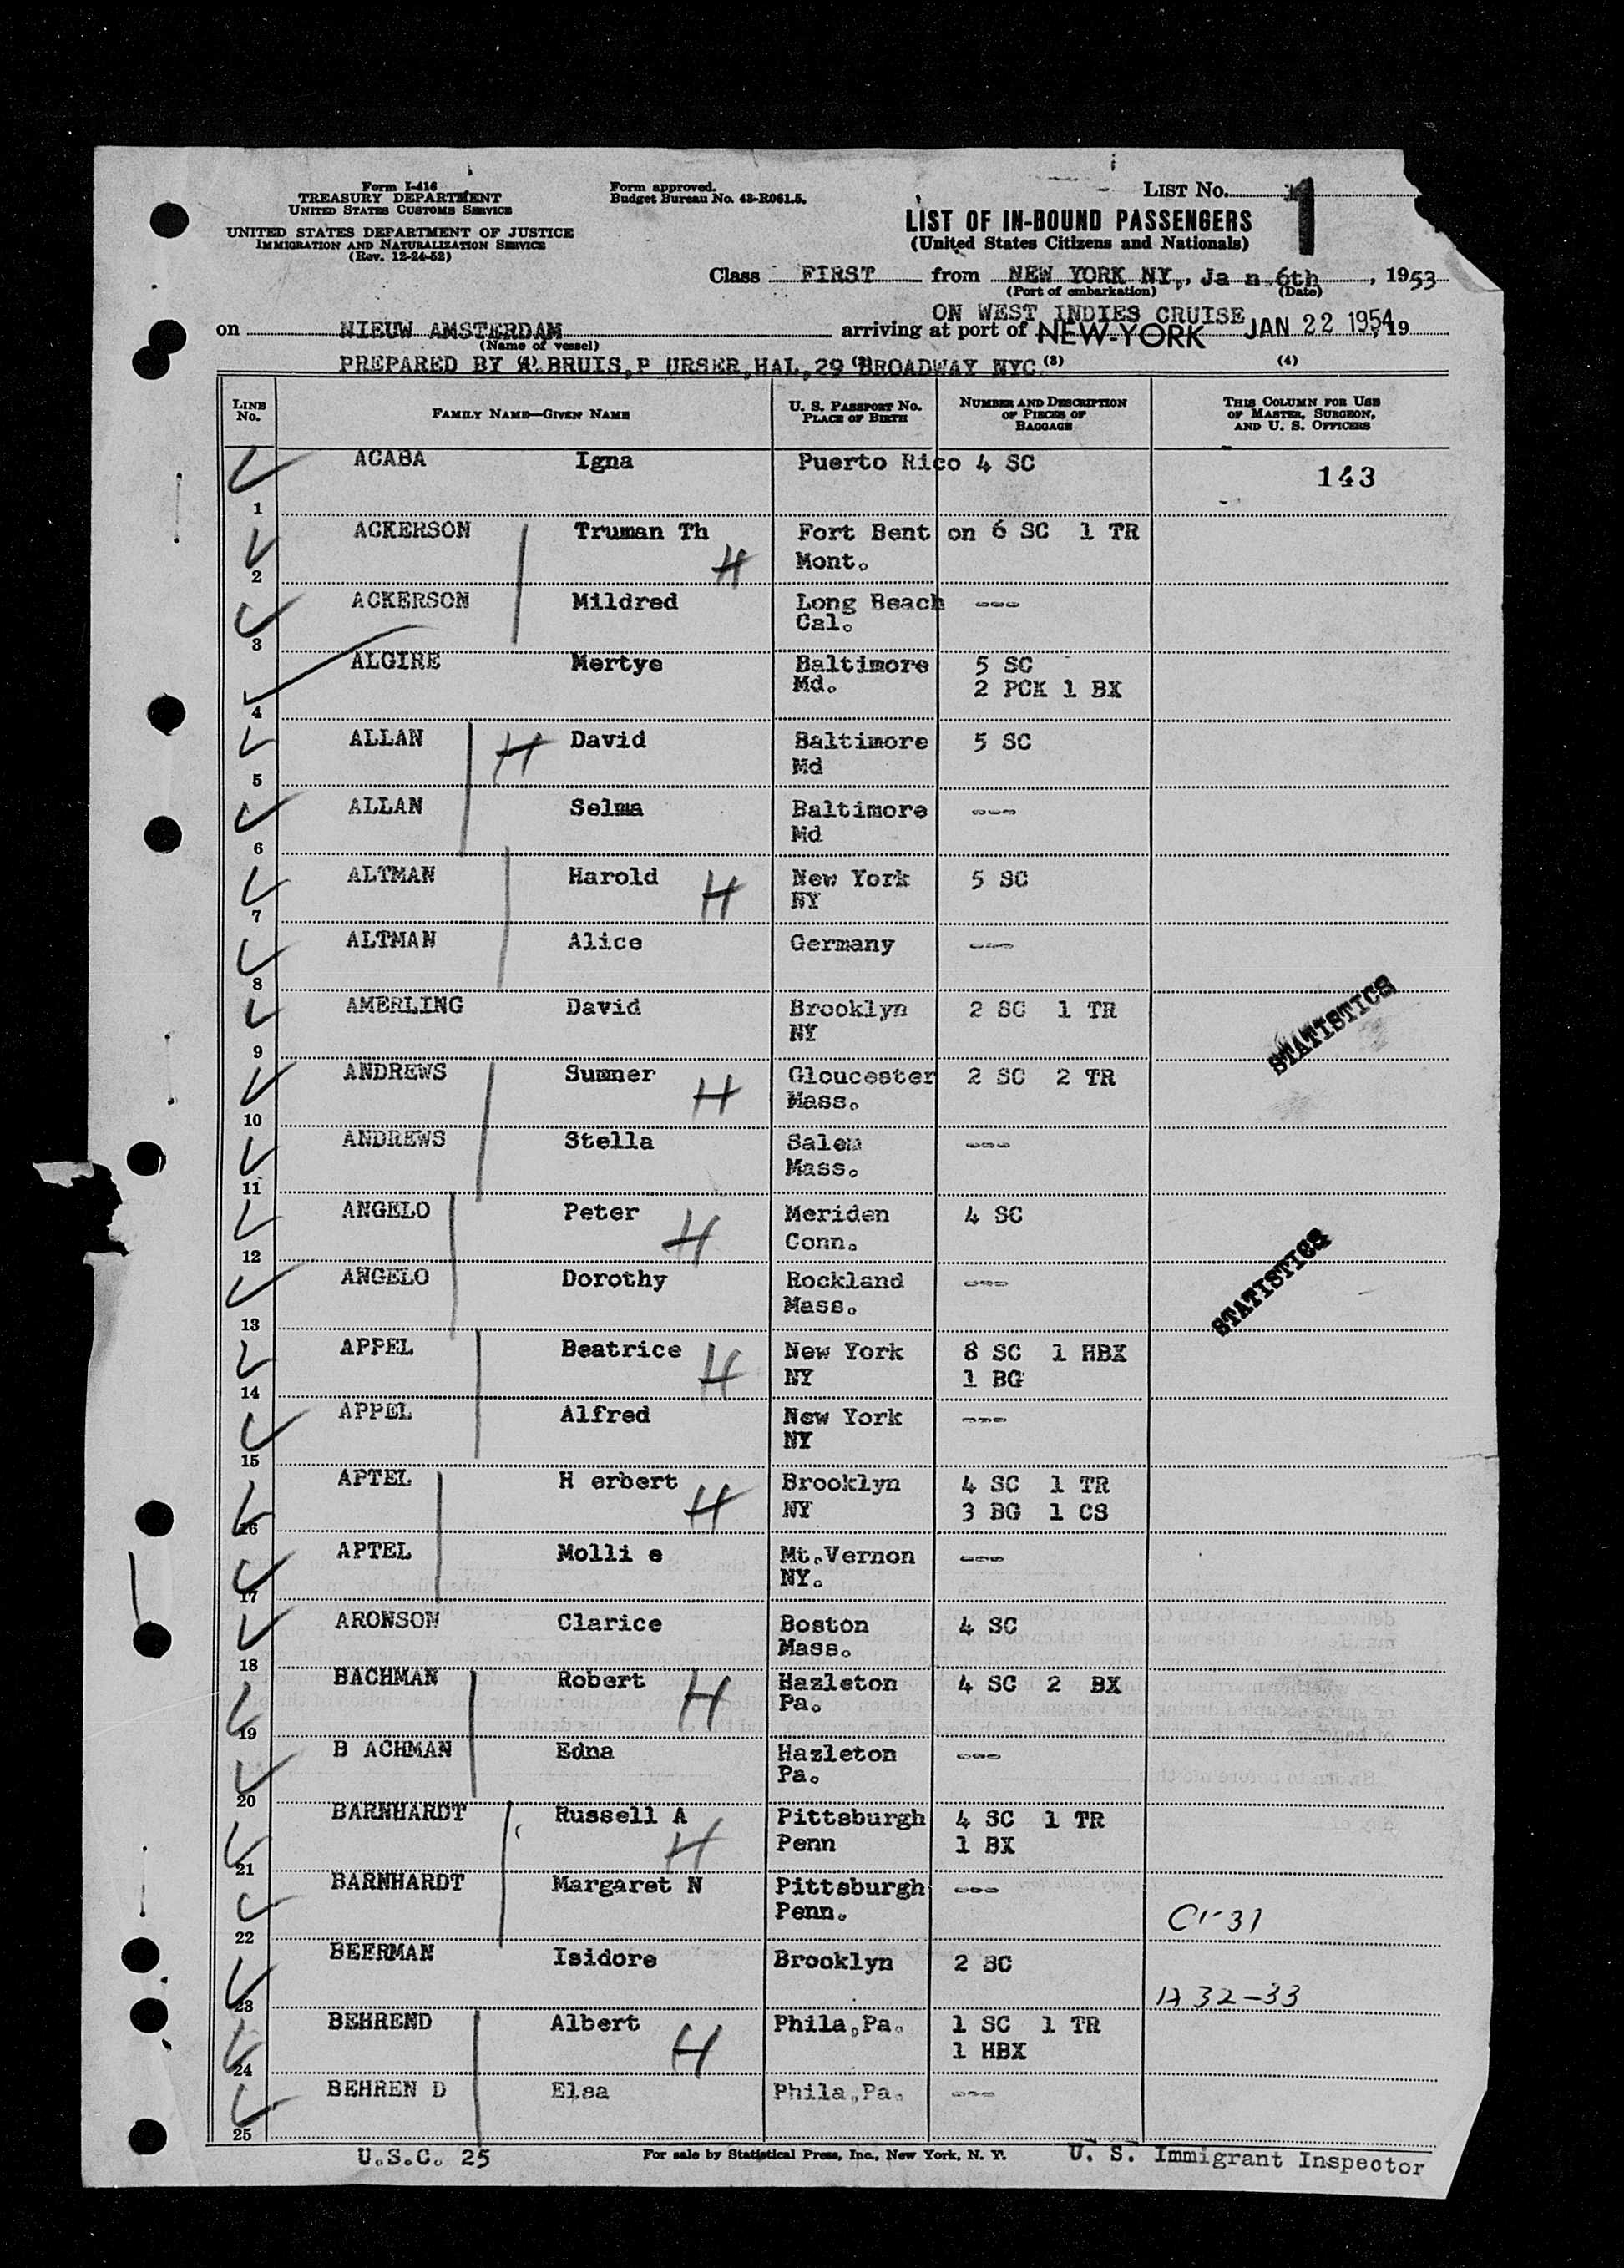 Form I-416
TREASURY DEPARTMENT
UNITED STATES CUSTOMS SERVICE
UNITED STATES DEPARTMENT OF JUSTICE
IMMIGRATION AND NATURALIZATION SERVICE
(Rev. 12-24-52)
Form approved.
Budget Bureau No. 43-R061.5.
LIST No. 1
LIST OF IN-BOUND PASSENGERS
(United States Citizens and Nationals)
Class FIRST from NEW YORK NY., Ja n 6th, 1953
(Port of embarkation) (Date)
ON WEST INDIES CRUISE
on NIEUW AMSTERDAM arriving at port of NEW-YORK JAN 22 1954, 19
(Name of vessel)
PREPARED BY A. BRUIS, P URSER, HAL, 29 BROADWAY NYC (3) (4)
LINE No. FAMILY NAME—GIVEN NAME U. S. PASSPORT No. PLACE OF BIRTH NUMBER AND DESCRIPTION OF PIECES OF BAGGAGE THIS COLUMN FOR USE OF MASTER, SURGEON, AND U. S. OFFICERS
1 ACABA Igna Puerto Rico 4 SC 143
2 ACKERSON Truman Th H Fort Bent on 6 SC 1 TR
Mont.
3 ACKERSON Mildred Long Beach ---
Cal.
4 ALGIRE Mertye Baltimore 5 SC
Md. 2 PCK 1 BX
5 ALLAN H David Baltimore 5 SC
Md
6 ALLAN Selma Baltimore ---
Md
7 ALTMAN Harold H New York 5 SC
NY
8 ALTMAN Alice Germany ---
9 AMERLING David Brooklyn 2 SC 1 TR
NY
STATISTICS
10 ANDREWS Sumner H Gloucester 2 SC 2 TR
Mass.
11 ANDREWS Stella Salem ---
Mass.
12 ANGELO Peter H Meriden 4 SC
Conn.
13 ANGELO Dorothy Rockland ---
Mass.
STATISTICS
14 APPEL Beatrice H New York 8 SC 1 HBX
NY 1 BG
15 APPEL Alfred New York ---
NY
16 APTEL H erbert H Brooklyn 4 SC 1 TR
NY 3 BG 1 CS
17 APTEL Molli e Mt.Vernon ---
NY.
18 ARONSON Clarice Boston 4 SC
Mass.
19 BACHMAN Robert H Hazleton 4 SC 2 BX
Pa.
20 B ACHMAN Edna Hazleton ---
Pa.
21 BARNHARDT Russell A H Pittsburgh 4 SC 1 TR
Penn 1 BX
22 BARNHARDT Margaret N Pittsburgh ---
Penn.
23 BEERMAN Isidore Brooklyn 2 SC
32-33
24 BEHREND Albert H Phila,Pa. 1 SC 1 TR
1 HBX
25 BEHREN D Elsa Phila,Pa. ---
U.S.C. 25 For sale by Statistical Press, Inc., New York, N. Y. U. S. Immigrant Inspector